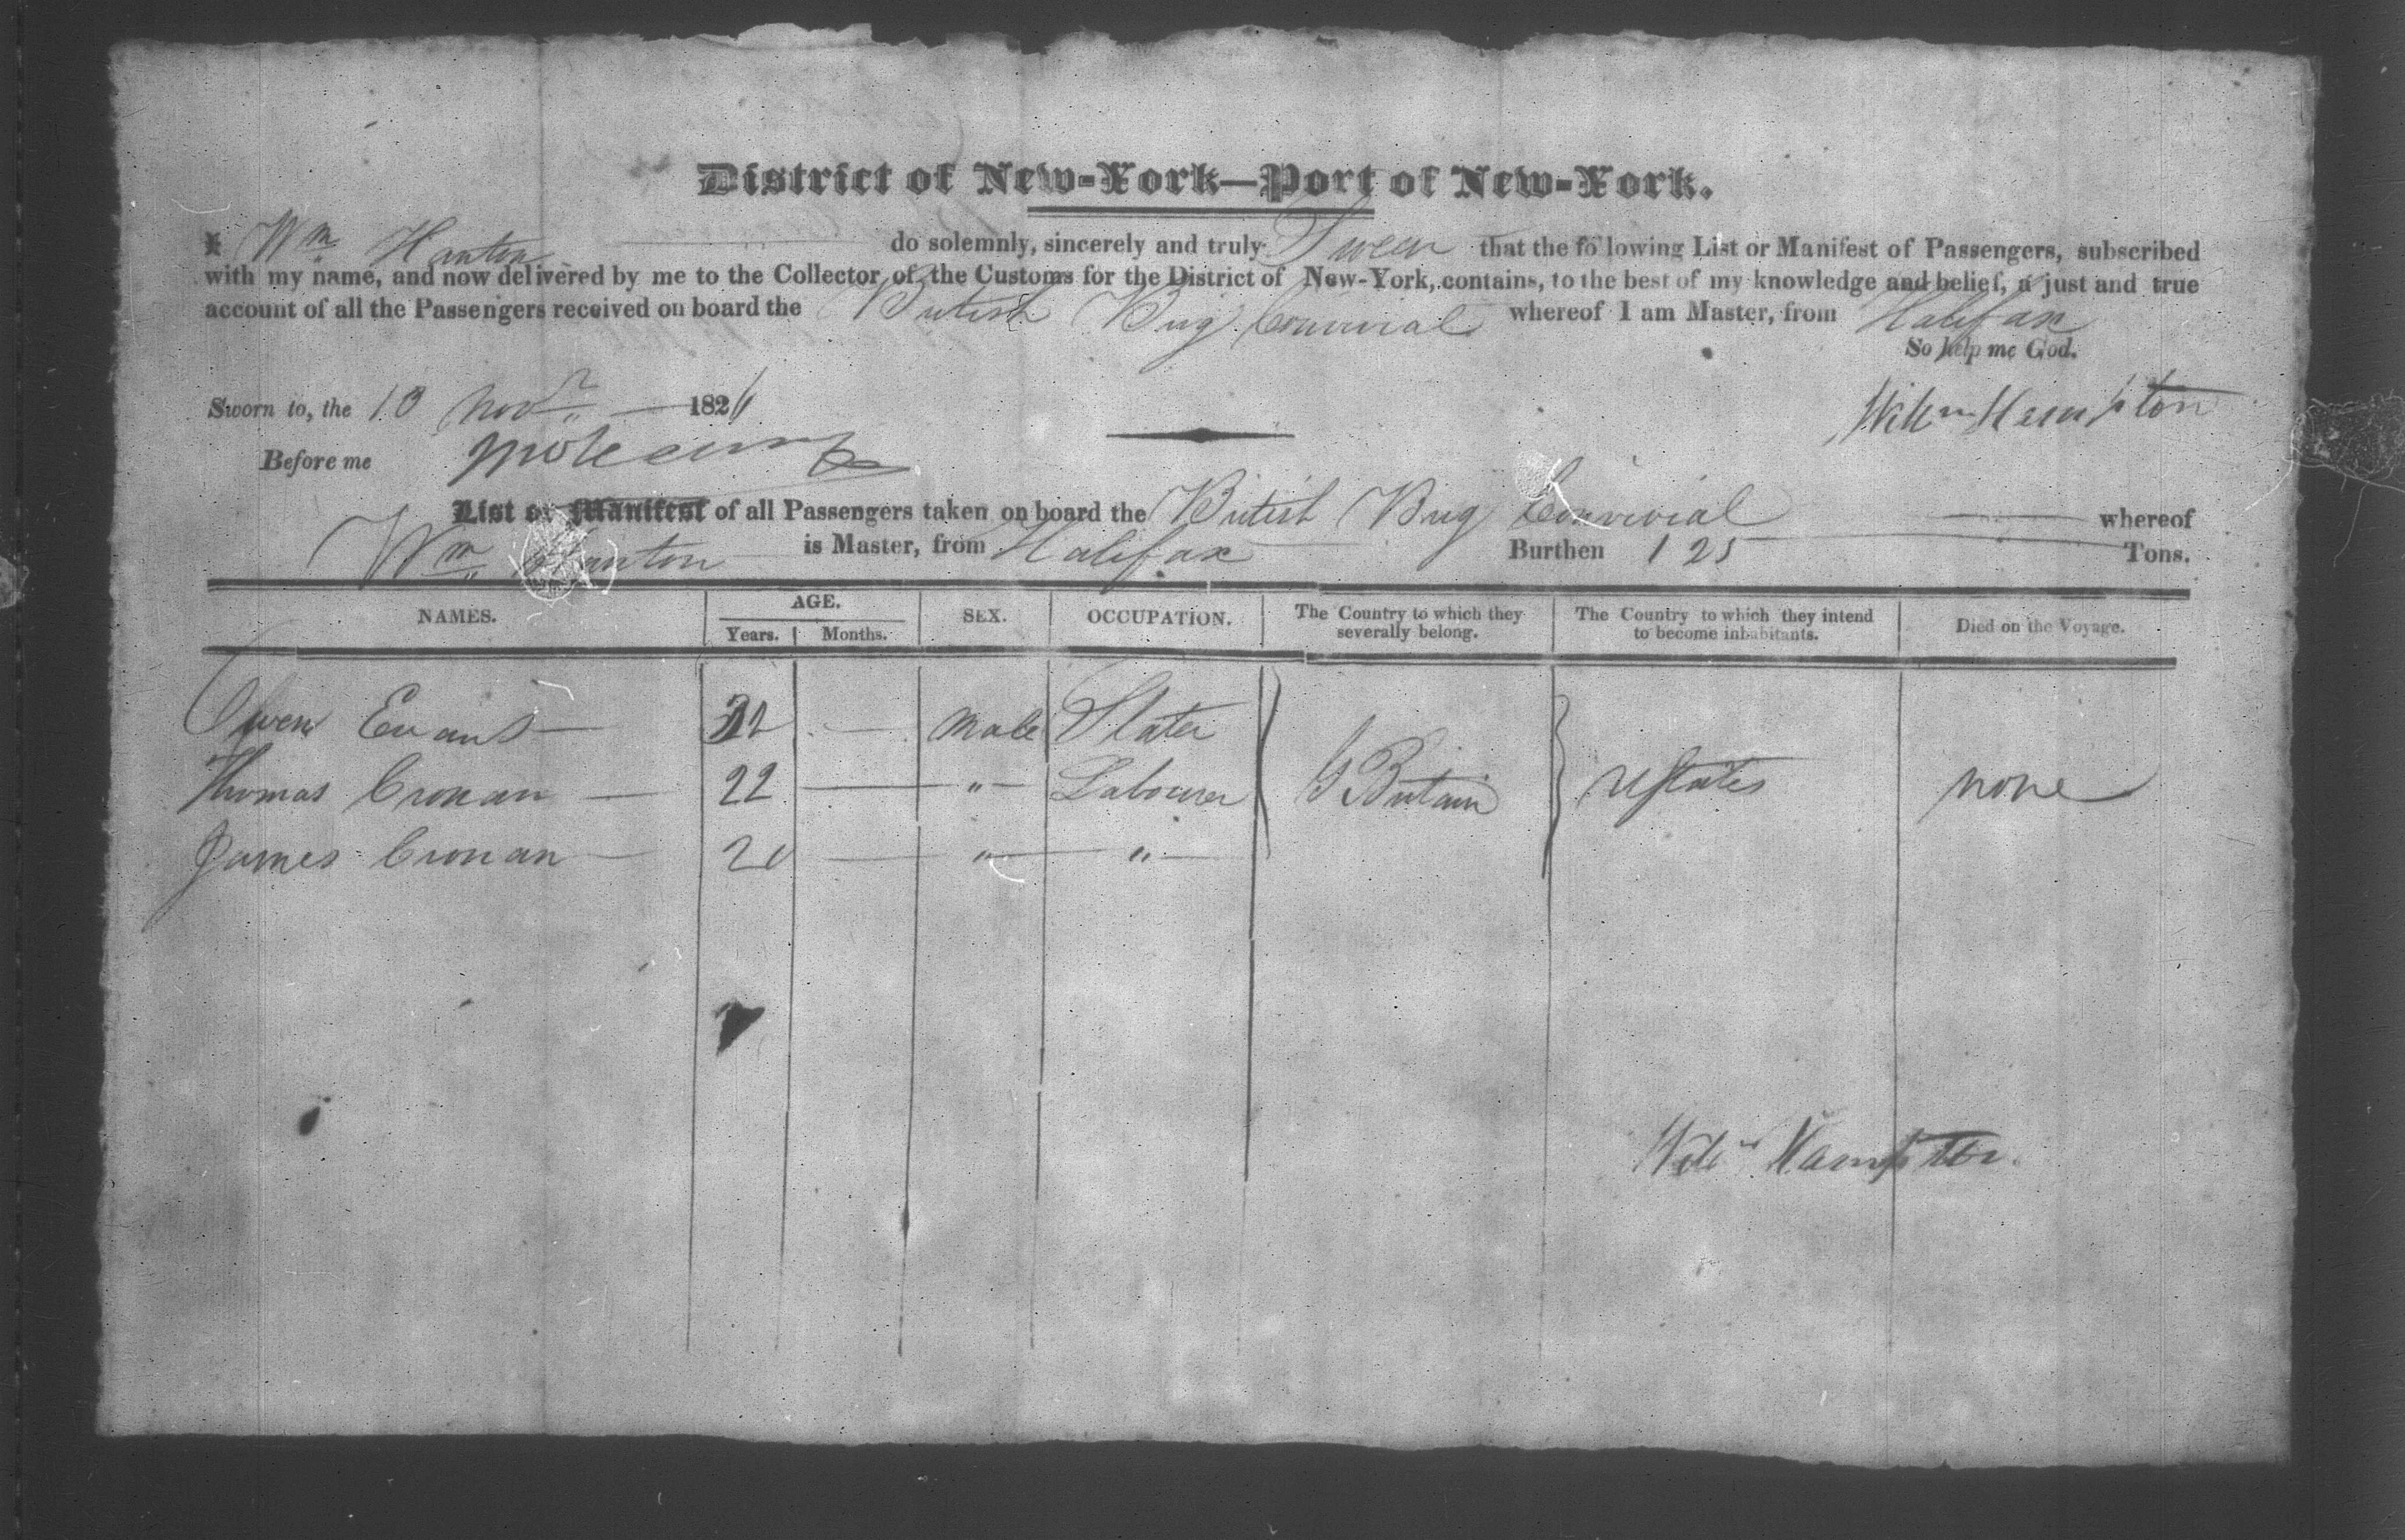 District of New-York—Port of New-York.
I Wm Hanton do solemnly, sincerely and truly Swear that the following List or Manifest of Passengers, subscribed
with my name, and now delivered by me to the Collector of the Customs for the District of New-York, contains, to the best of my knowledge and belief, a just and true
account of all the Passengers received on board the British Brig Convivial whereof I am Master, from Halifax
So help me God.
Sworn to, the 10 Novr 1826
Willm Hampton
Before me
List or Manifest of all Passengers taken on board the British Brig Convivial whereof
Wm Hanton is Master, from Halifax Burthen 125 Tons.
NAMES. AGE. SEX. OCCUPATION. The Country to which they severally belong. The Country to which they intend to become inhabitants. Died on the Voyage.
Years. Months.
Owen Evans — — male Slater
Thomas Cronan — 22 — " — Labourer G Britain UStates none
James Cronan — 20 — " — " —
Willm Hampton